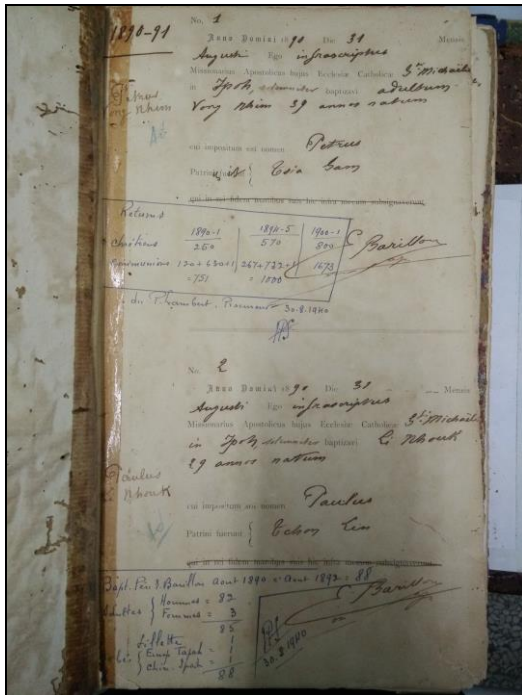 1890-91
No. 1
Anno Domini 1890 Die 31 Mensis
Augusti Ego infrascriptus
Missionarius Apostolicus hujus Ecclesiæ Catholicæ Sti Michaëlis
in Ipoh, solemniter baptizavi adultum
Vong Nhim 39 annos natum
Petrus
Vong Nhim
cui impositum est nomen Petrus
Patrinus fuit { Tsia Sam
qui in rei fidem manibus suis hic infra mecum subsignaverunt.
Returns
1890-1 | 1894-5 | 1900-1
Chrétiens 250 | 570 | 800
Communions 120+630+1 | 267+732+1 | 1673
=751 = 1000
E. Barillon
du P. Lambert. 30.8.1940
No. 2
Anno Domini 1890 Die 31 Mensis
Augusti Ego infrascriptus
Missionarius Apostolicus hujus Ecclesiæ Catholicæ Sti Michaëlis
in Ipoh, solemniter baptizavi Li Nhouk
29 annos natum
Paulus
Li Nhouk
cui impositum est nomen Paulus
Patrini fuerunt { Tchon Lin
qui in rei fidem manibus suis hic infra mecum subsignaverunt.
Bapt. Père E. Barillon Aout 1890 - Aout 1892 = 88
Adultes { Hommes = 82
Femmes = 3
85
E. Barillon
Fillette 1
Emp Tapah = 1
Chin. Ipoh = 1
88
30.8.1940